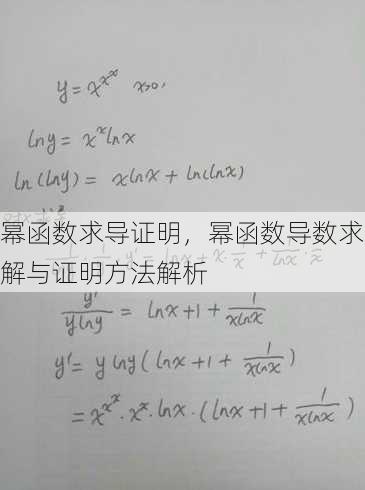 y = x^{x^x}  x>0,
lny = x^x lnx
ln(lny) = xlnx + ln(lnx)
幂函数求导证明，幂函数导数求
解与证明方法解析
y'/(ylny) = lnx+1+ 1/(xlnx)
y' = ylny(lnx+1+ 1/(xlnx))
= x^{x^x}·x^x·lnx·(lnx+1+ 1/(xlnx))